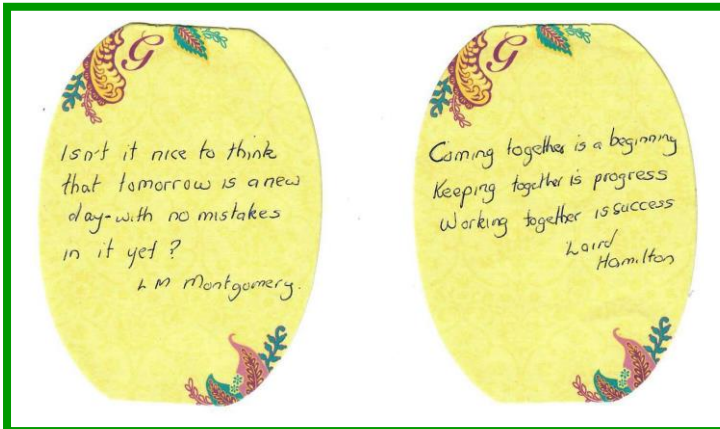 G
Isn't it nice to think
that tomorrow is a new
day-with no mistakes
in it yet?
L M Montgomery.
G
Coming together is a beginning
Keeping together is progress
Working together is success
Laird
Hamilton